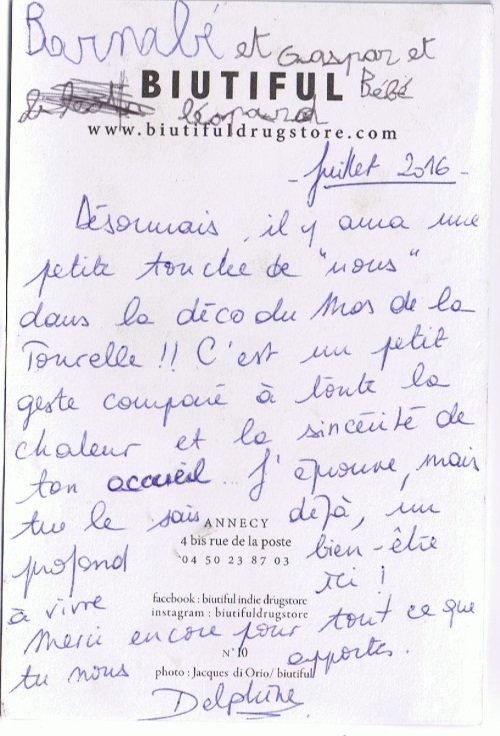 Barnabé et Gaspar et
BIUTIFUL Bébé
léopard
www.biutifuldrugstore.com
- Juillet 2016 -
Désormais, il y aura une
petite touche de "nous"
dans la déco du Mas de la
Tourelle !! C'est un petit
geste comparé à toute la
chaleur et la sincérité de
ton accueil. J'éprouve, mais
tu le sais déjà, un
ANNECY
4 bis rue de la poste
profond bien-être
04 50 23 87 03
à vivre ici !
facebook : biutiful indie drugstore
instagram : biutifuldrugstore
Merci encore pour tout ce que
N°10
tu nous apportes.
photo : Jacques di Orio/ biutiful
Delphine